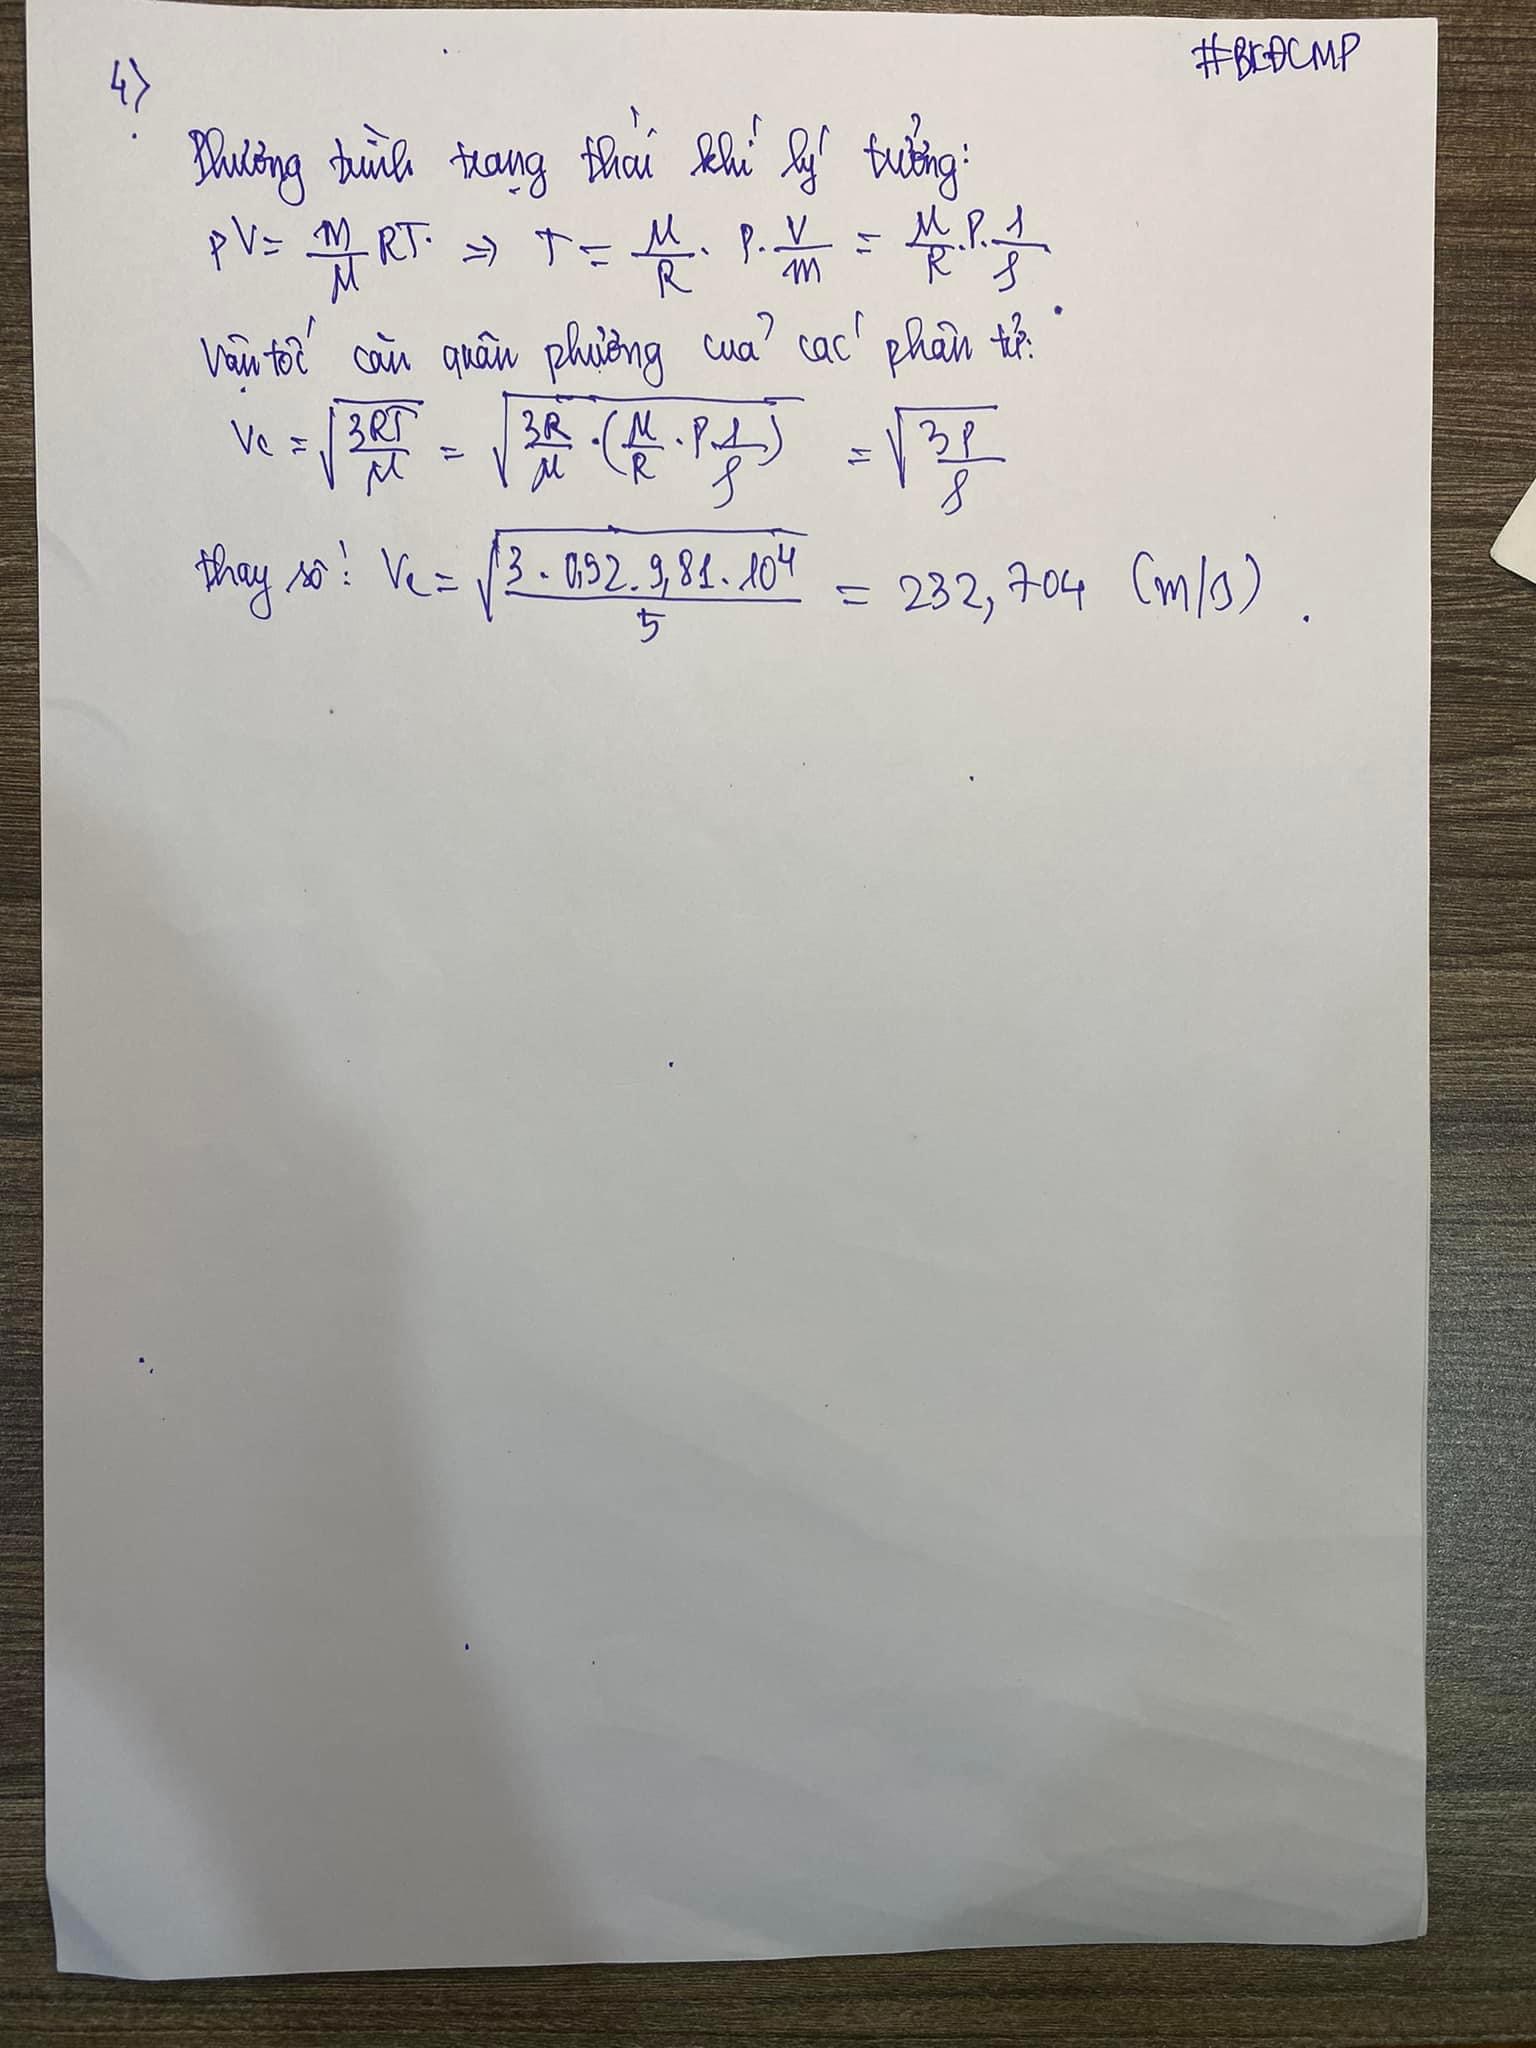 #BKĐCMP
4)
Phương trình trạng thái khí lý tưởng:
pV = m/μ RT. => T = μ/R . P. V/m = μ/R . P. 1/ρ
Vận tốc căn quân phương của các phân tử:
Vc = √(3RT/μ) = √(3R/μ . (μ/R . P. 1/ρ)) = √(3P/ρ)
thay số: Vc = √(3. 0,92. 9,81. 10⁴/5) = 232,704 (m/s).